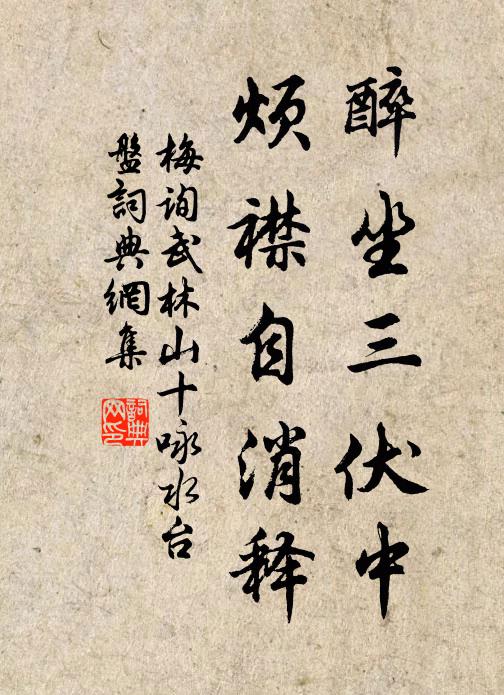 醉坐三伏中
烦襟自消释
梅询武林山十咏水台
盤詞典網集
詞典网印